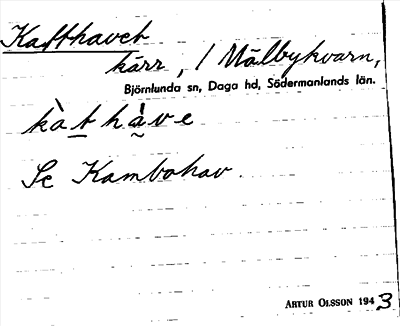 Katthavet
kärr, / Mälbykvarn,
Björnlunda sn, Daga hd, Södermanlands län.
kàt hàve
Se Kambohav.
ARTUR OLSSON 1943